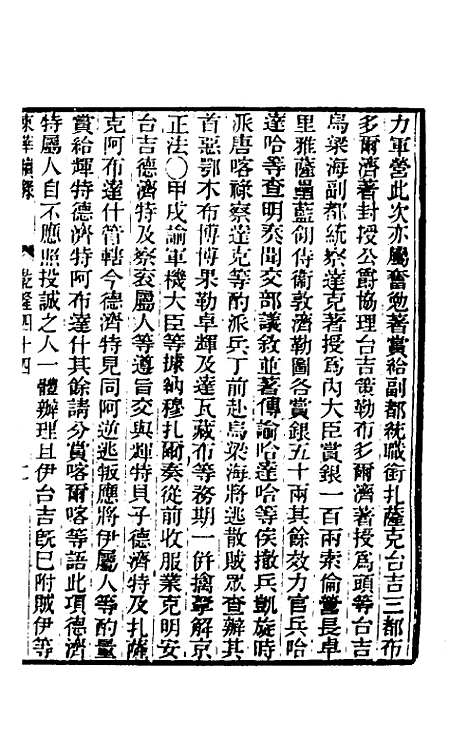 力軍營此次亦屬奮勉著賞給副都統職銜扎薩克台吉三都布
多爾濟著封授公爵協理台吉策勒布多爾濟著授爲頭等台吉
烏梁海副都統察達克著授爲內大臣賞銀一百兩索倫營長卓
里雅薩壘藍翎侍衛敦濟勒圖各賞銀五十兩其餘效力官兵哈
達哈等查明奏聞交部議敘並著傳諭哈達哈等俟撤兵凱旋時
派唐喀祿察達克等酌派兵丁前赴烏梁海將逃散賊眾查辦其
首惡鄂木布博博果勒卓輝及達瓦藏布等務期一併擒拏解京
正法〇甲戌諭軍機大臣等據納穆扎爾奏從前收服業克明安
台吉德濟特及察袞屬人等遵旨交與輝特貝子德濟特及扎薩
克阿布達什管轄今德濟特見同阿逆逃叛應將伊屬人等酌量
賞給輝特德濟特阿布達什其餘請分賞喀爾喀等語此項德濟
特屬人自不應照投誠之人一體辦理且伊台吉旣已附賊伊等
東華續錄 乾隆四十四